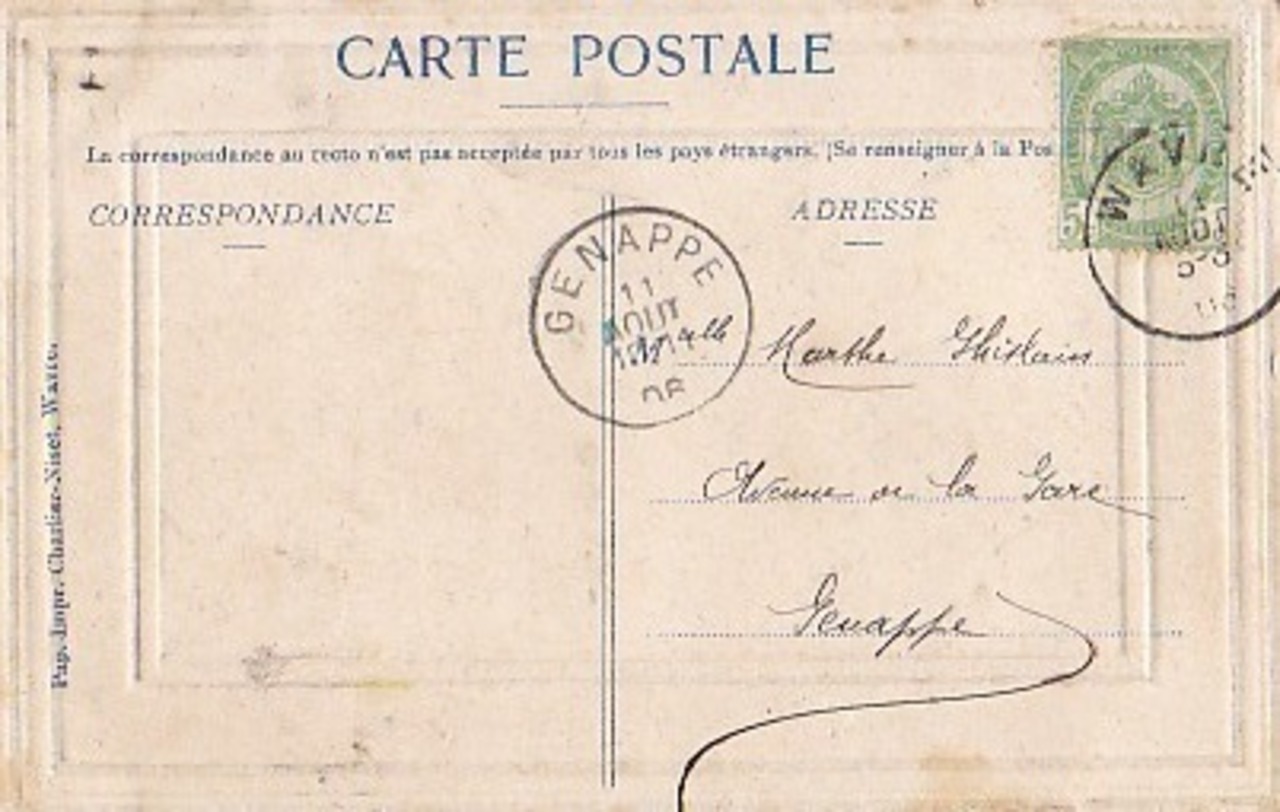 CARTE POSTALE
La correspondance au recto n'est pas acceptée par tous les pays étrangers. (Se renseigner à la Pos
CORRESPONDANCE
ADRESSE
5
WAV
11
AOUT
GENAPPE
11
AOUT
Melle Marthe Ghislain
Avenue de la Gare
Genappe
Pap.-Impr. Charlier-Niset, Wavre.